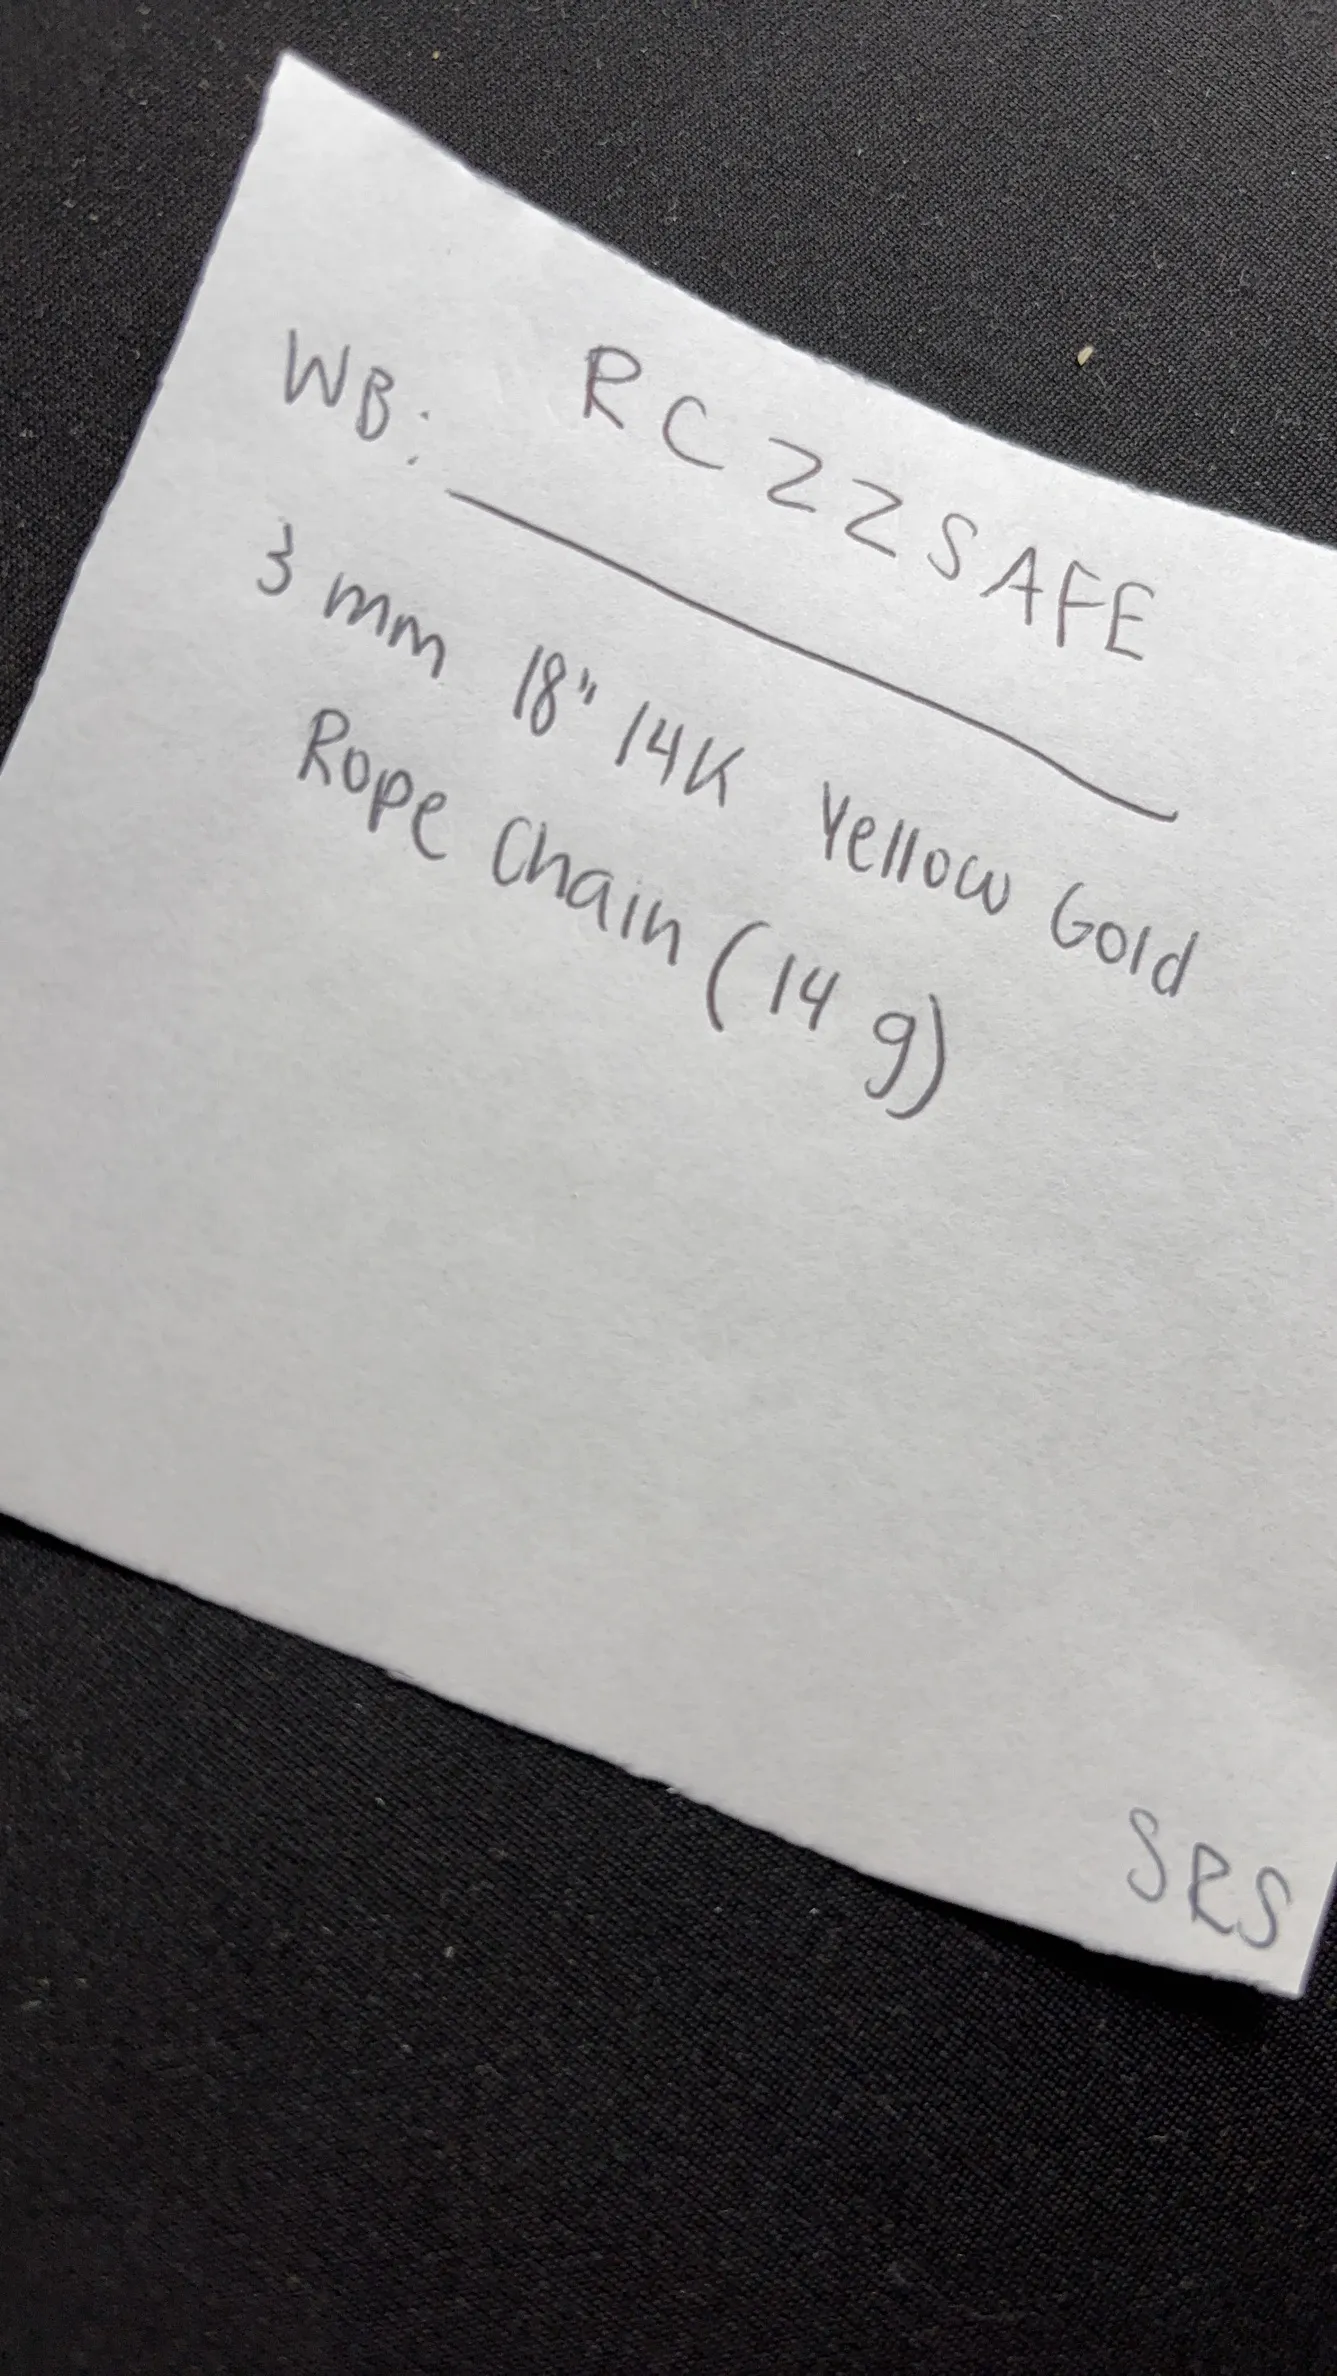 WB: RCZZSAFE
3 mm 18" 14K Yellow Gold
Rope Chain (14 g)
SRS